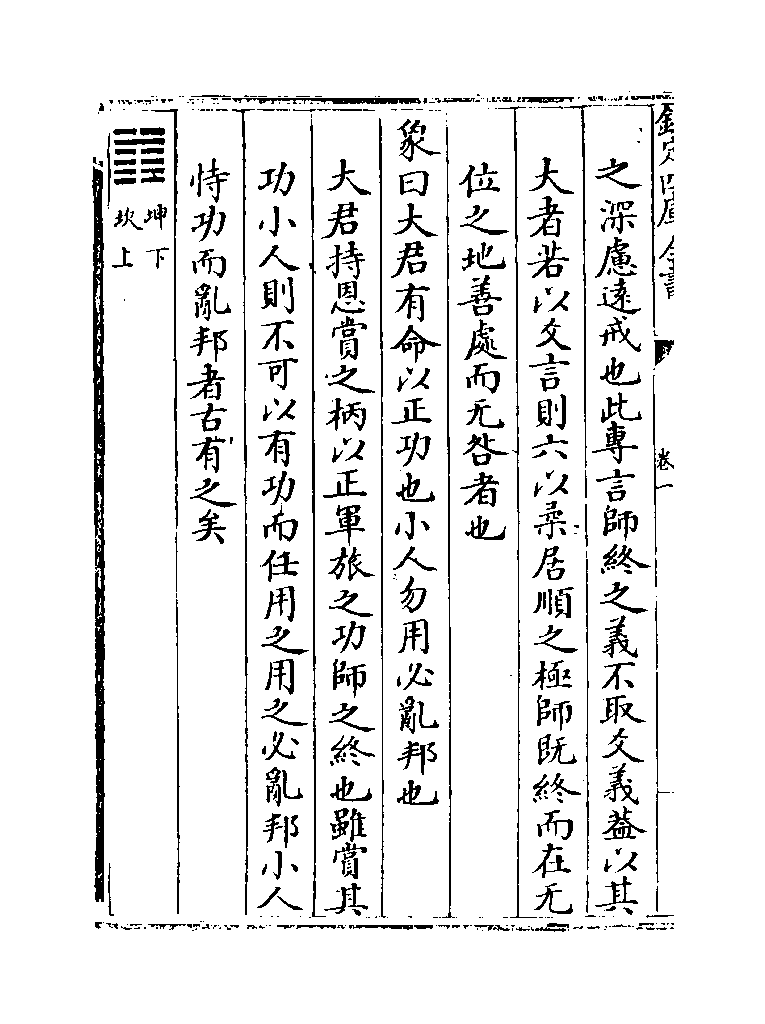 欽定四庫全書
卷一
之深慮遠戒也此專言師終之義不取爻義蓋以其
大者若以爻言則六以柔居順之極師既終而在无
位之地善處而无咎者也
象曰大君有命以正功也小人勿用必亂邦也
大君持恩賞之柄以正軍旅之功師之終也雖賞其
功小人則不可以有功而任用之用之必亂邦小人
恃功而亂邦者古有之矣
坤下
坎上